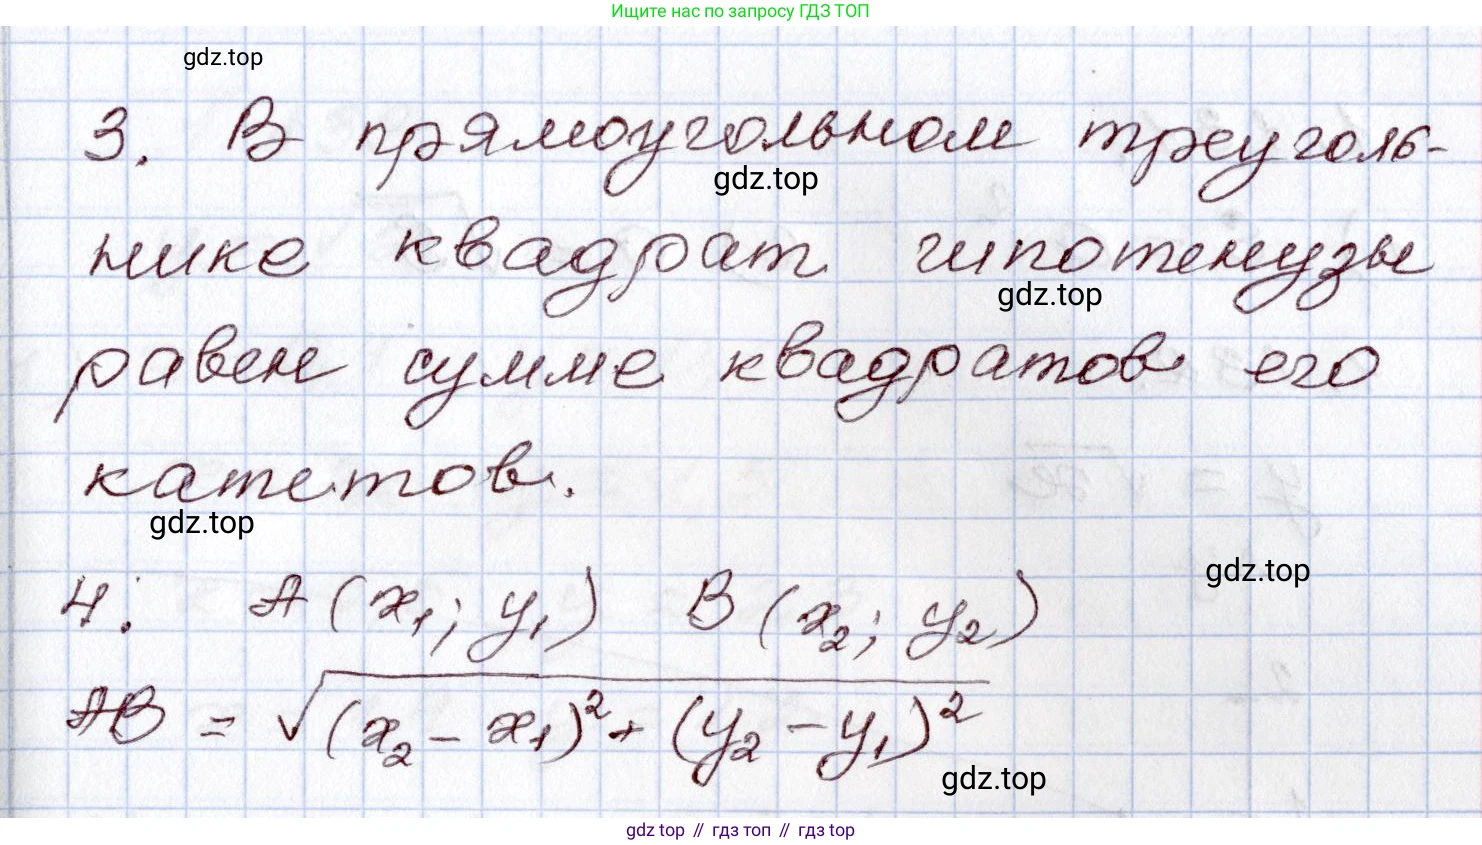 Ищите нас по запросу ГДЗ ТОП
gdz.top
3. В прямоуголь­ном треуголь-
gdz.top
нике квадрат гипотенузы
gdz.top
равен сумме квадратов его
катетов.
gdz.top
gdz.top
4. A(x₁; y₁) B(x₂; y₂)
AB = √((x₂ - x₁)² + (y₂ - y₁)²)
gdz.top
gdz top // гдз топ // gdz top